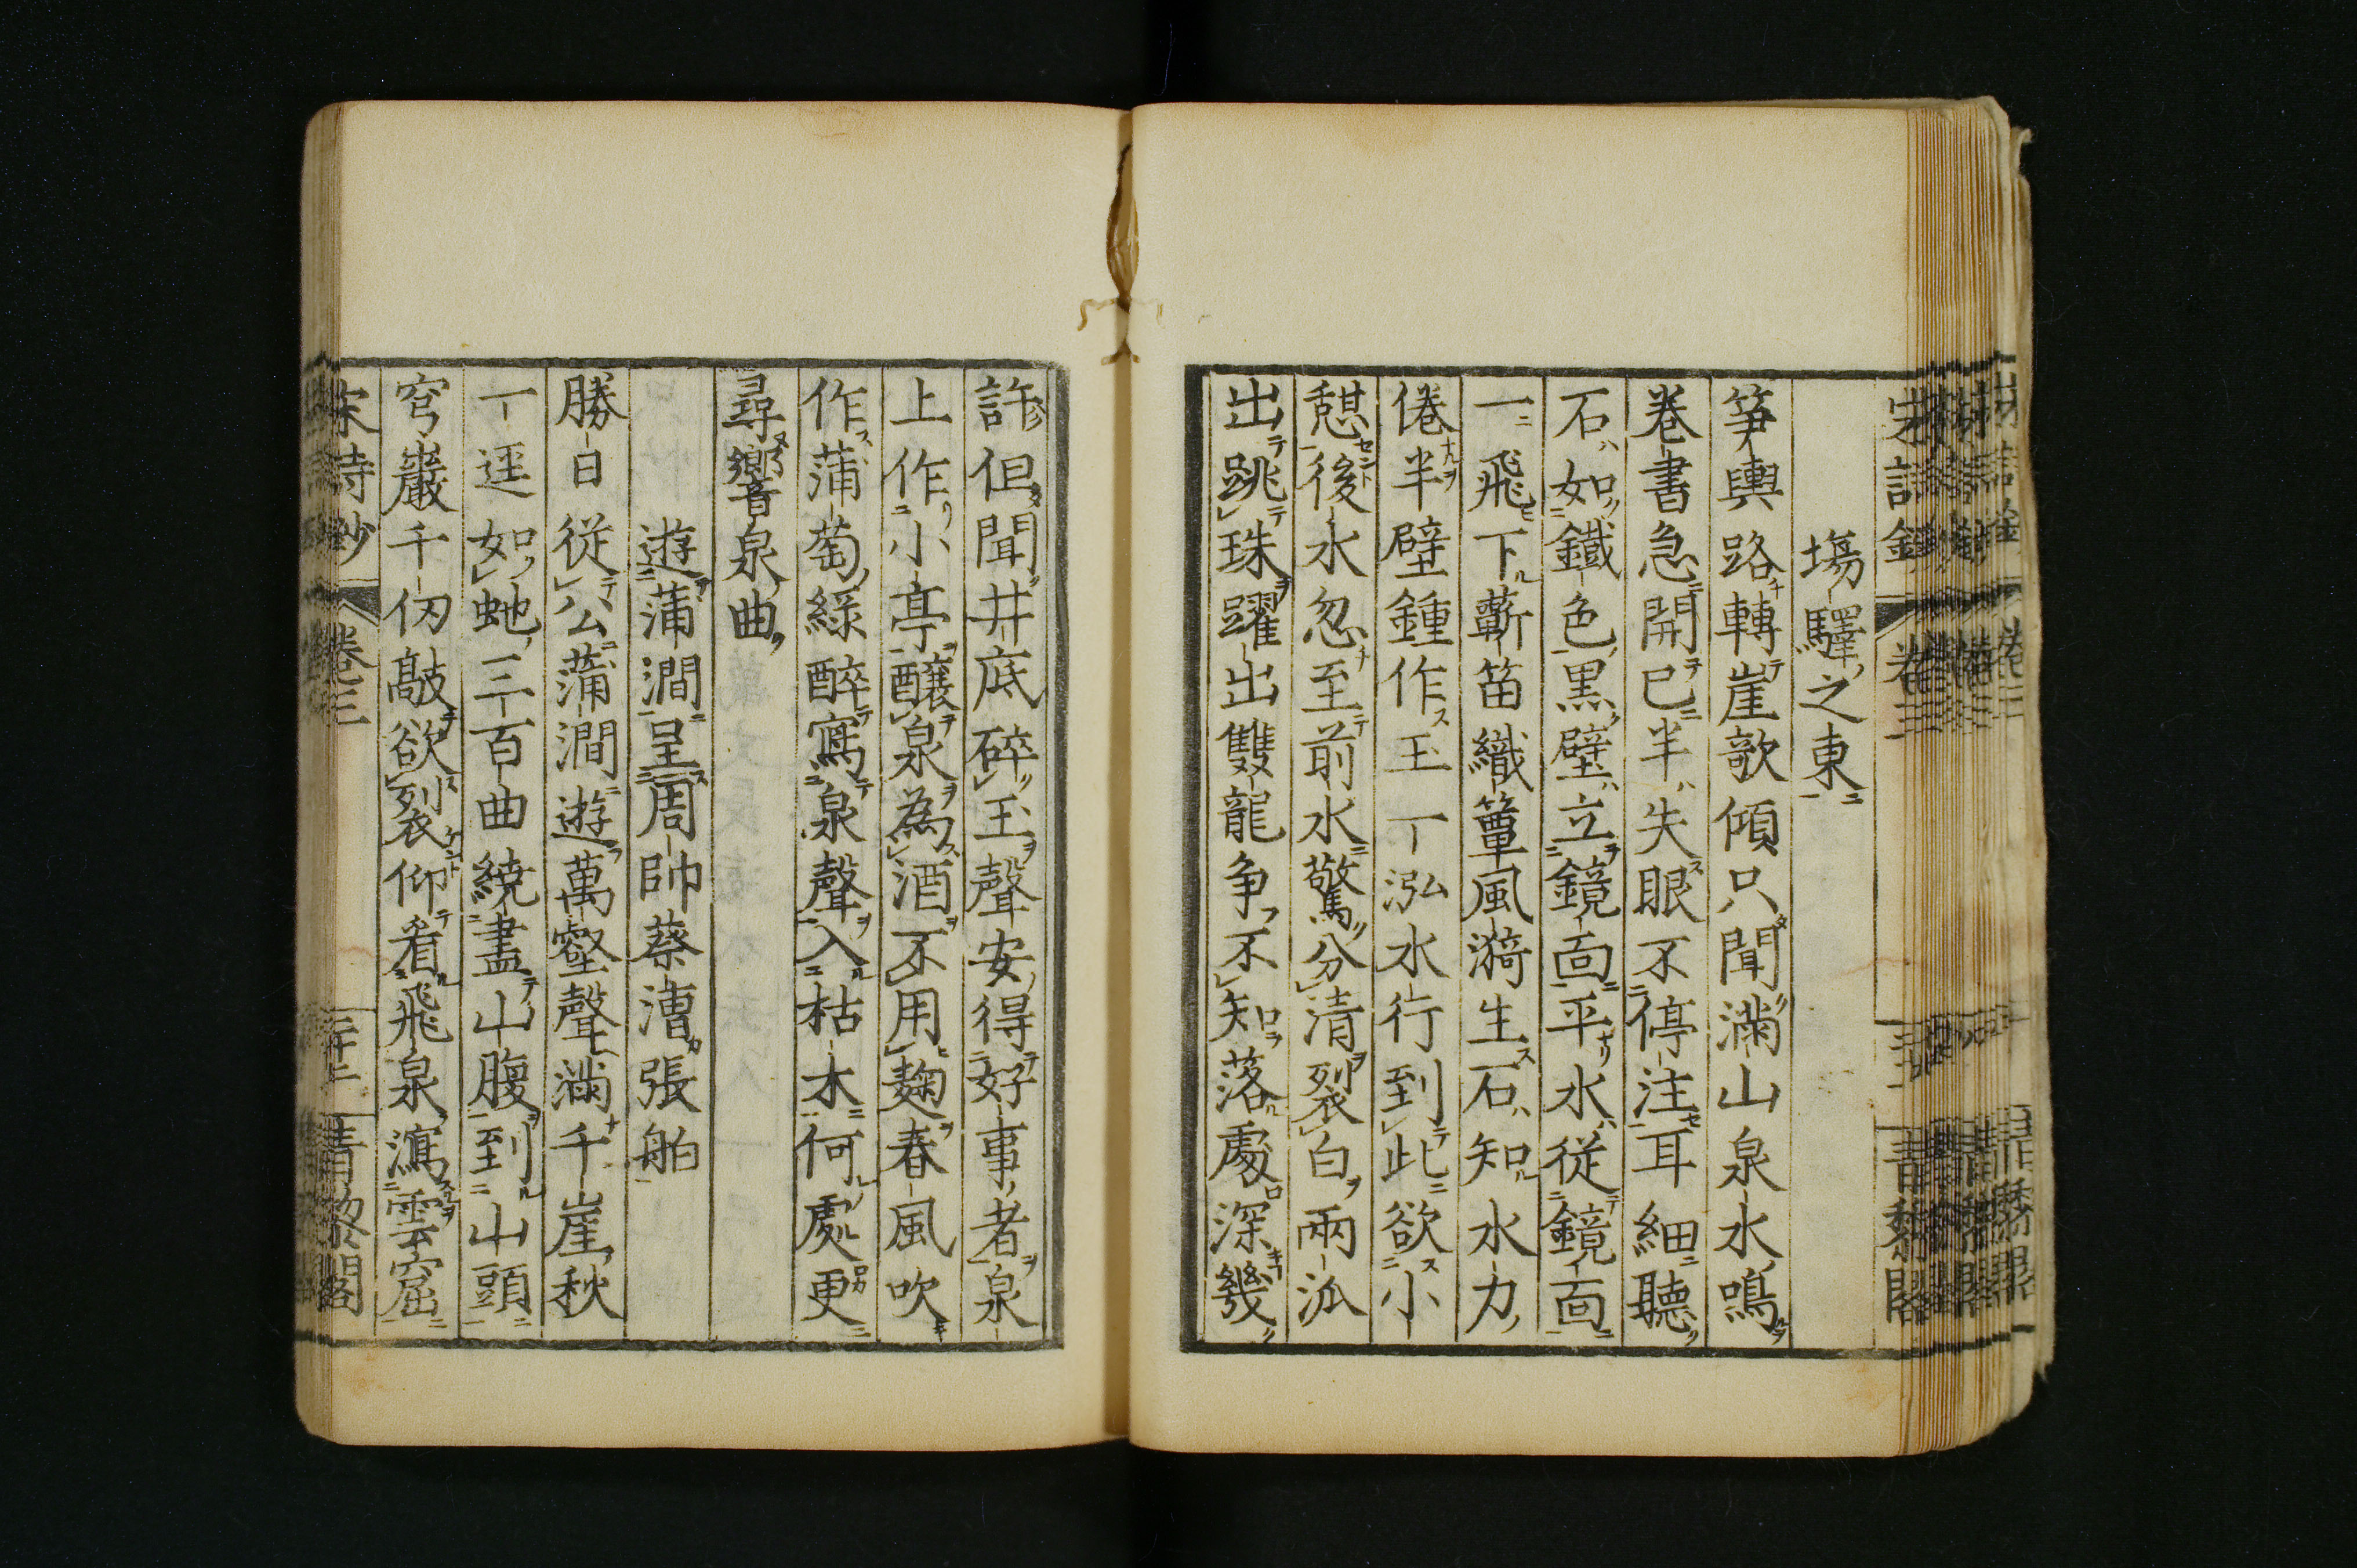 塲驛之東
筝輿路轉崖欹傾只聞滿山泉水鳴
卷書急開已半失眼不停注耳細聽
石如鐵色黒壁立鏡靣平水從鏡靣
一飛下蘄笛織簟風漪生石知水力
倦半壁鍾作玉一泓水行到此欲小
憇後水忽至前水驚分清裂白兩泒
出跳珠躍出雙龍争不知落處深幾
許但聞井底碎玉聲安得好事者泉
上作小亭釀泉為酒不用麹春風吹
作蒲萄綠醉寫泉聲入枯木何處更
尋響泉曲
遊蒲澗呈周帥蔡漕張舶
勝日從公蒲澗遊萬壑聲滿千崖秋
一逕如虵三百曲繞盡山腹到山頭
穹巖千仭敲欲裂仰看飛泉瀉雲窟
宋詩鈔 卷三 二十二 青黎閣